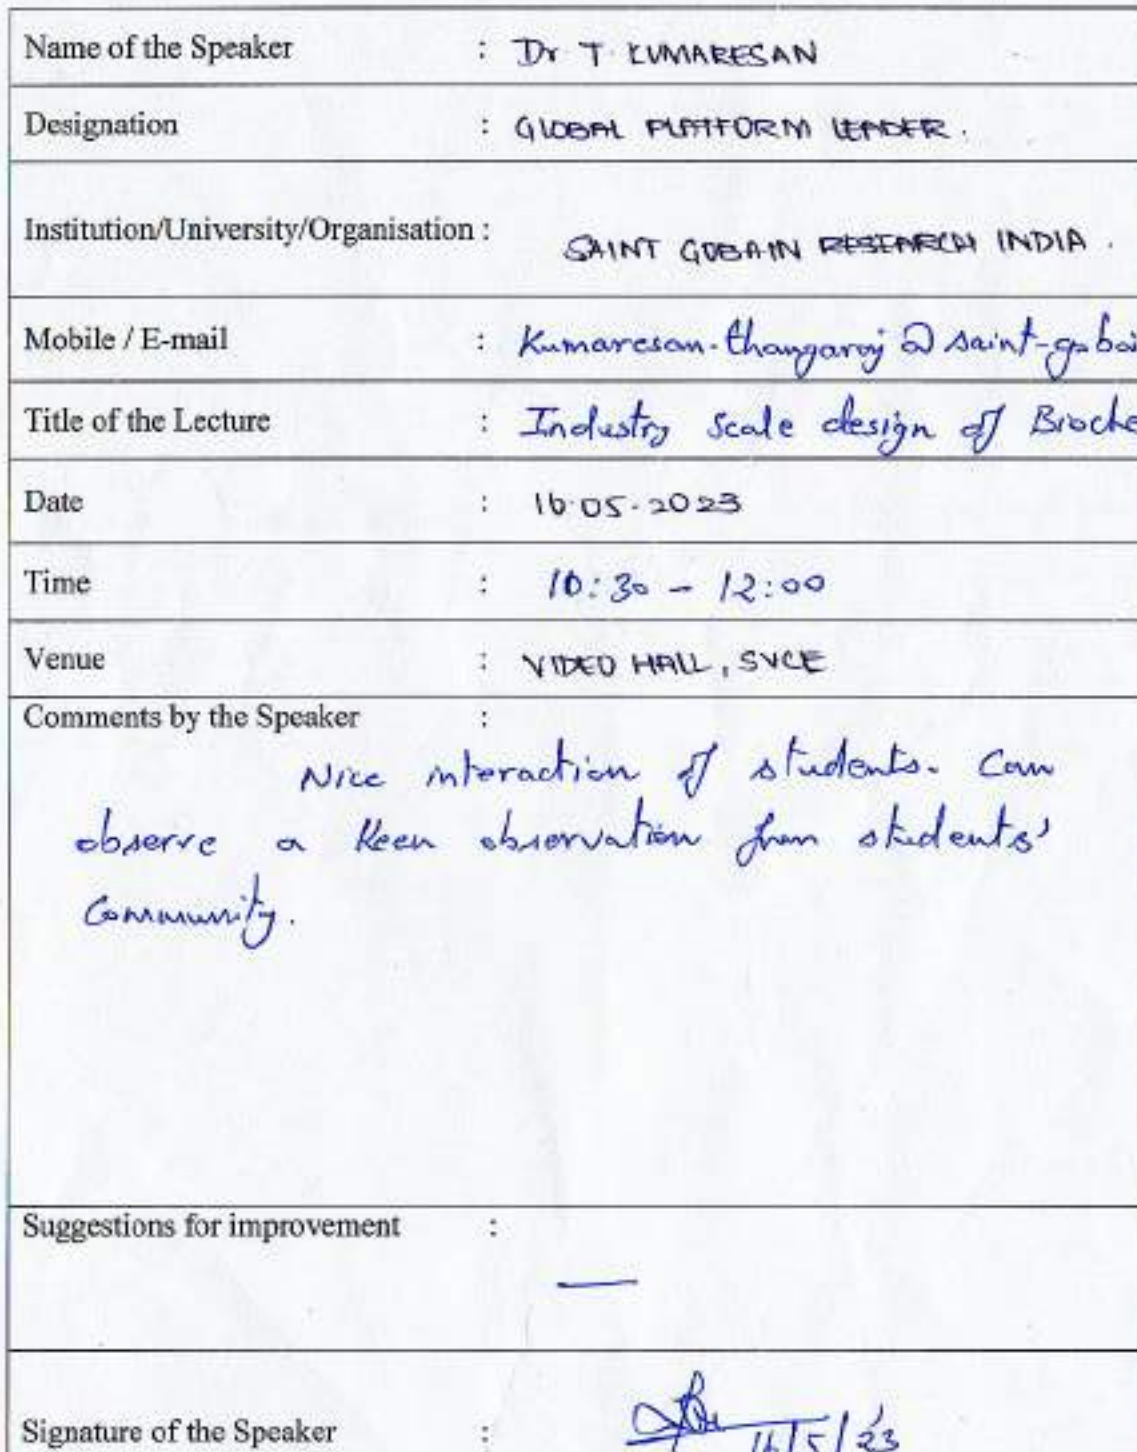 Name of the Speaker : Dr T. KUMARESAN
Designation : GLOBAL PLATFORM LEADER.
Institution/University/Organisation : SAINT GOBAIN RESEARCH INDIA.
Mobile / E-mail : Kumaresan.thangaraj@saint-gobai
Title of the Lecture : Industry Scale design of Bioche
Date : 16.05.2023
Time : 10:30 - 12:00
Venue : VIDEO HALL, SVCE
Comments by the Speaker :
Nice interaction of students. Can
observe a keen observation from students'
Community.
Suggestions for improvement : —
Signature of the Speaker : 16/5/23